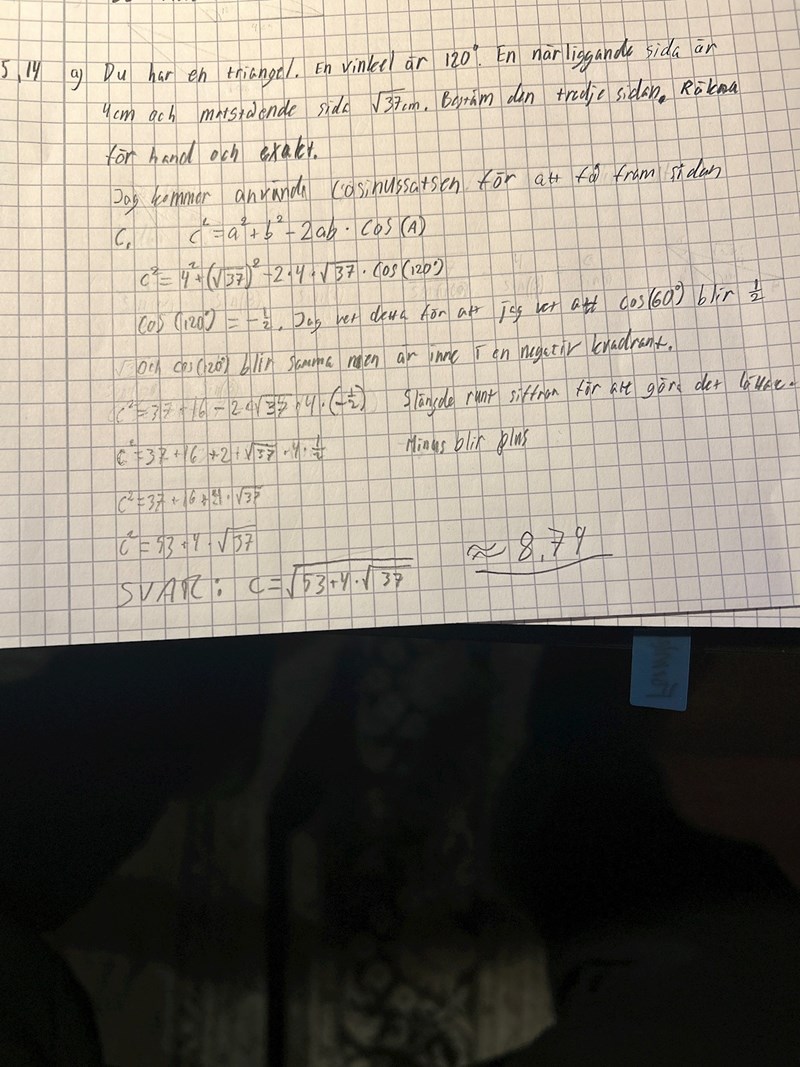 5,14 a) Du har en triangel. En vinkel är 120°. En närliggande sida är
4cm och motstående sida √37cm. Bestäm den tredje sidan. Räkna
för hand och exakt.
Jag kommer använda Cosinussatsen för att få fram sidan
C. c² = a² + b² - 2ab · cos(A)
c² = 4² + (√37)² - 2·4·√37 · cos(120°)
Cos (120°) = -1/2. Jag vet detta för att jag vet att cos(60°) blir 1/2
och cos(120°) blir samma men är inne i en negativ kvadrant.
c² = 37 + 16 - 2·√37 · 4 · (-1/2) Slängde runt siffran för att göra det lättare.
c² = 37 + 16 + 2 · √37 · 4 · 1/2 Minus blir plus
c² = 37 + 16 + 4 · √37
c² = 53 + 4 · √37
SVAR: c = √(53 + 4 · √37) ≈ 8,79